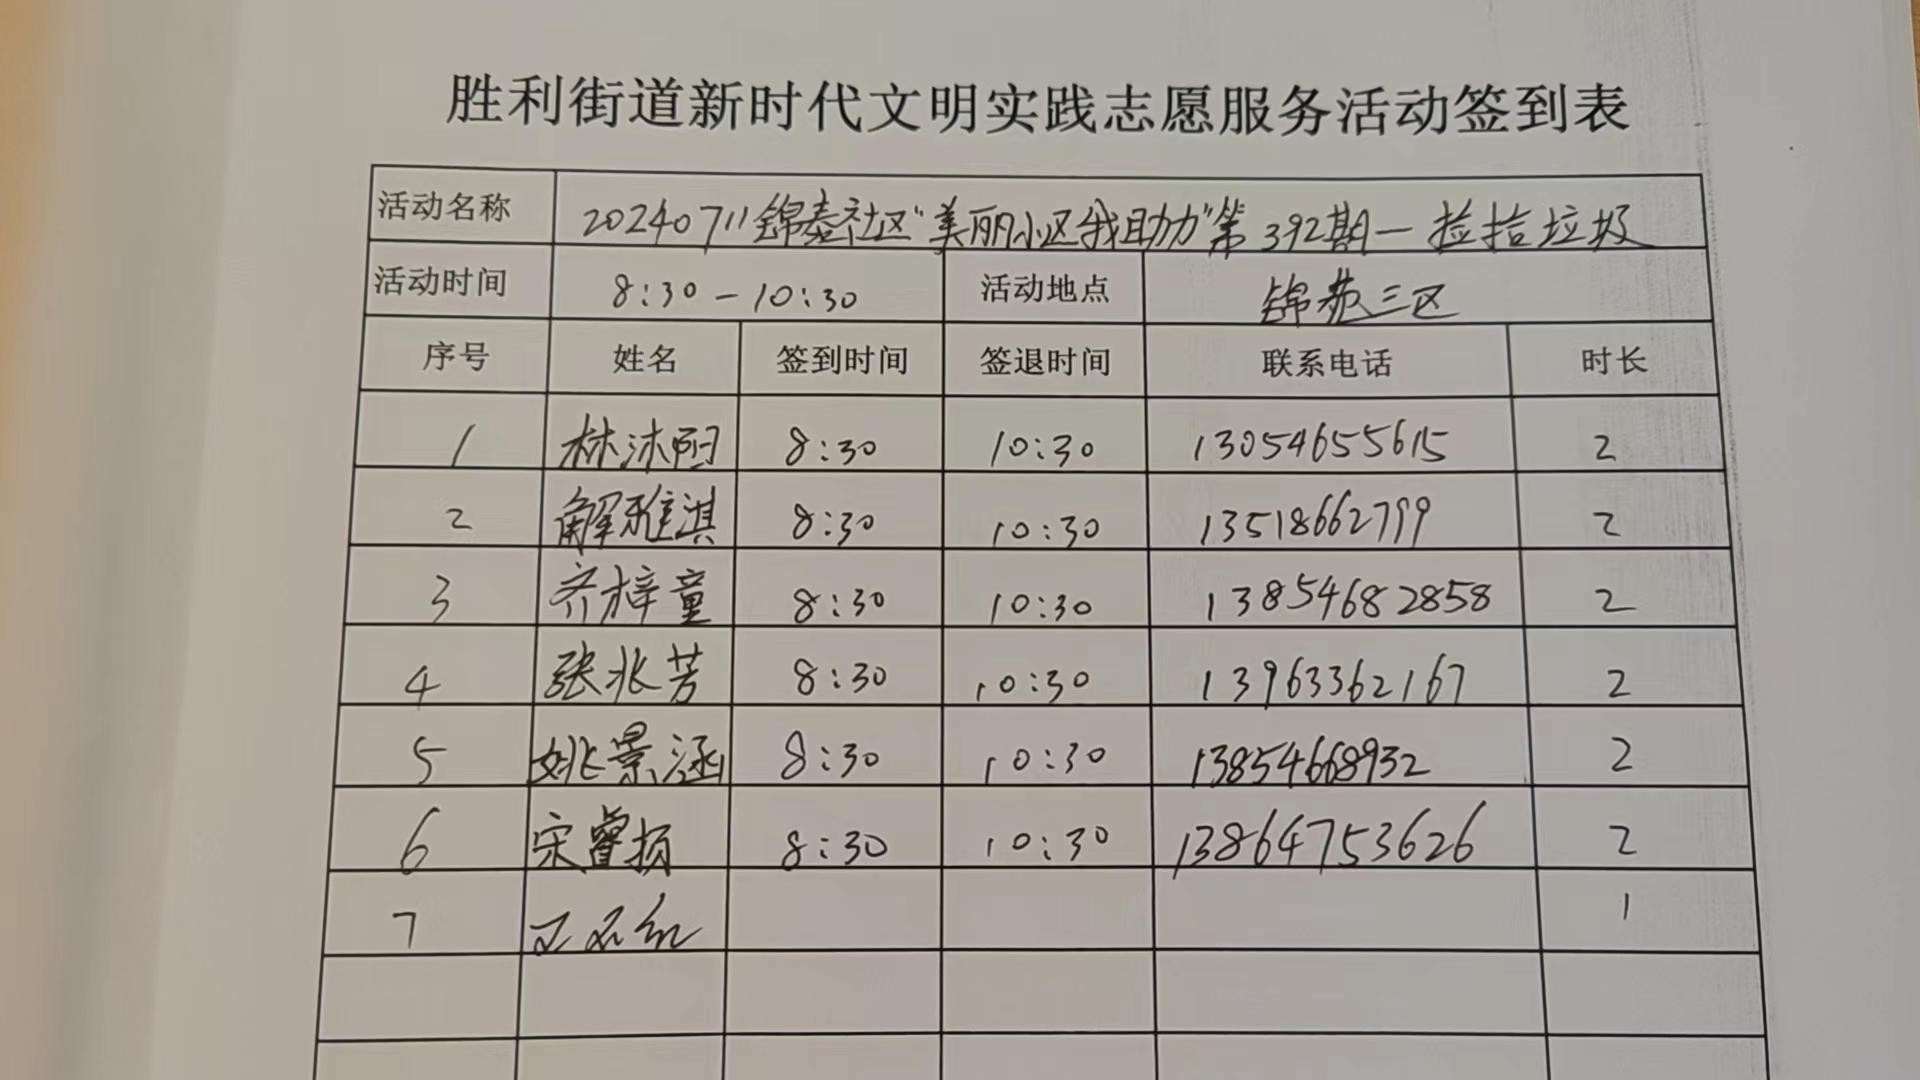 胜利街道新时代文明实践志愿服务活动签到表
活动名称 20240711锦泰社区"美丽小区我助力"第392期—捡拾垃圾
活动时间 8:30-10:30 活动地点 锦苑三区
序号 姓名 签到时间 签退时间 联系电话 时长
1 林沐阳 8:30 10:30 13054655615 2
2 解雅淇 8:30 10:30 13518662799 2
3 齐梓童 8:30 10:30 13854682858 2
4 张兆芳 8:30 10:30 13963362167 2
5 姚景涵 8:30 10:30 13854668932 2
6 宋睿扬 8:30 10:30 13864753626 2
7 1